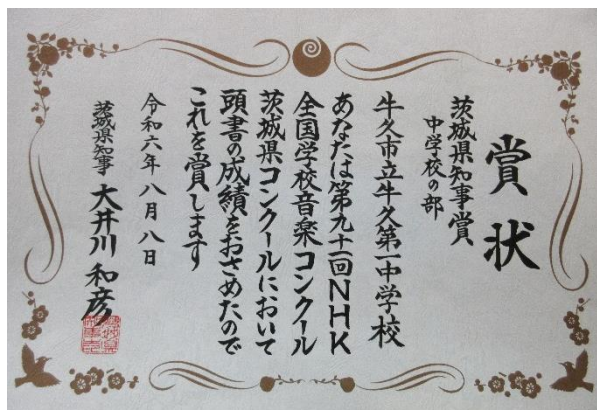 賞状
茨城県知事賞
中学校の部
牛久市立牛久第一中学校
あなたは第九十一回NHK
全国学校音楽コンクール
茨城県コンクールにおいて
頭書の成績をおさめたので
これを賞します
令和六年八月八日
茨城県知事 大井川和彦